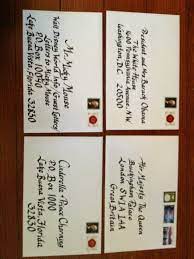 President and Mrs. Barack Obama
The White House
1600 Pennsylvania Avenue, N.W.
Washington, D.C.
20500
Her Majesty The Queen
Buckingham Palace
London SW1A 1AA
Great Britain
Mr. Mickey Mouse
Walt Disney World
Letters to Mickey Mouse
P.O. Box
Lake Buena Vista, Florida
32830
Cinderella Prince Charming
P.O. Box
Lake Buena Vista, Florida
32830